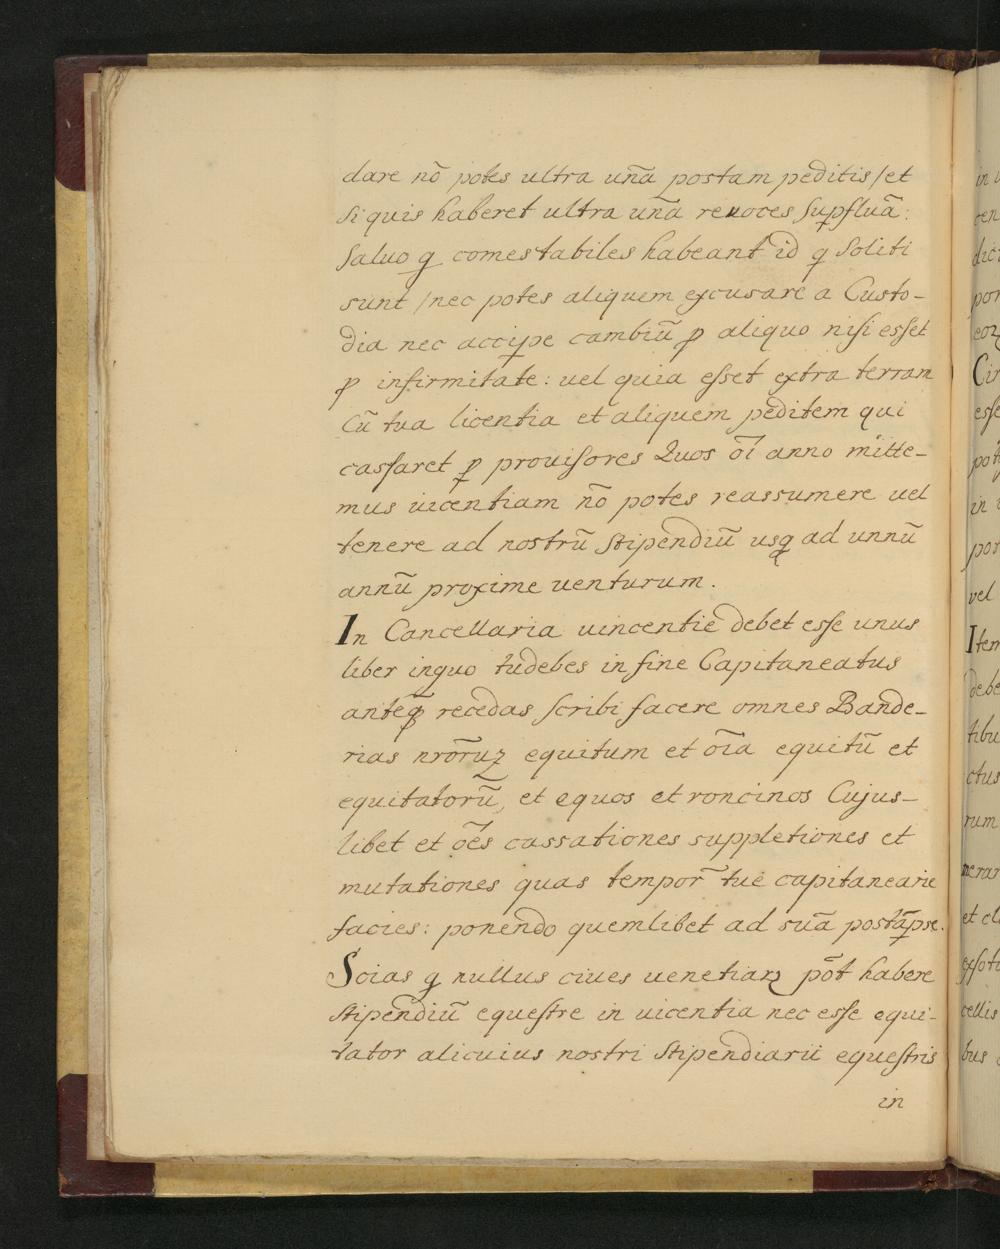 dare nō potes ultra unā postam peditis / et
si quis haberet ultra unā reuoces supfluā:
saluo q comestabiles habeant id q soliti
sunt / nec potes aliquem excusare a Custo-
dia nec accipe cambiū p aliquo nisi esset
p infirmitate: uel quia esset extra terram
Cū tua licentia et aliquem peditem qui
cassaret p prouisores Quos oī anno mitte-
mus uicentiam nō potes reassumere uel
tenere ad nostrū stipendiū usq ad unnū
annū proxime uenturum.
In Cancellaria uincentie debet esse unus
liber inquo tudebes in fine Capitaneatus
anteq̄ recedas scribi facere omnes Bande-
rias nrōruꝫ equitum et oīa equitū et
equitatorū, et equos et roncinos Cujus-
libet et oēs cassationes suppletiones et
mutationes quas tempor̄ tue capitanearie
facies: ponendo quemlibet ad suā postāpse.
Scias q nullus ciues uenetiarꝫ pōt habere
stipendiū equestre in uicentia nec esse equi-
tator alicuius nostri stipendiarii equestris
in